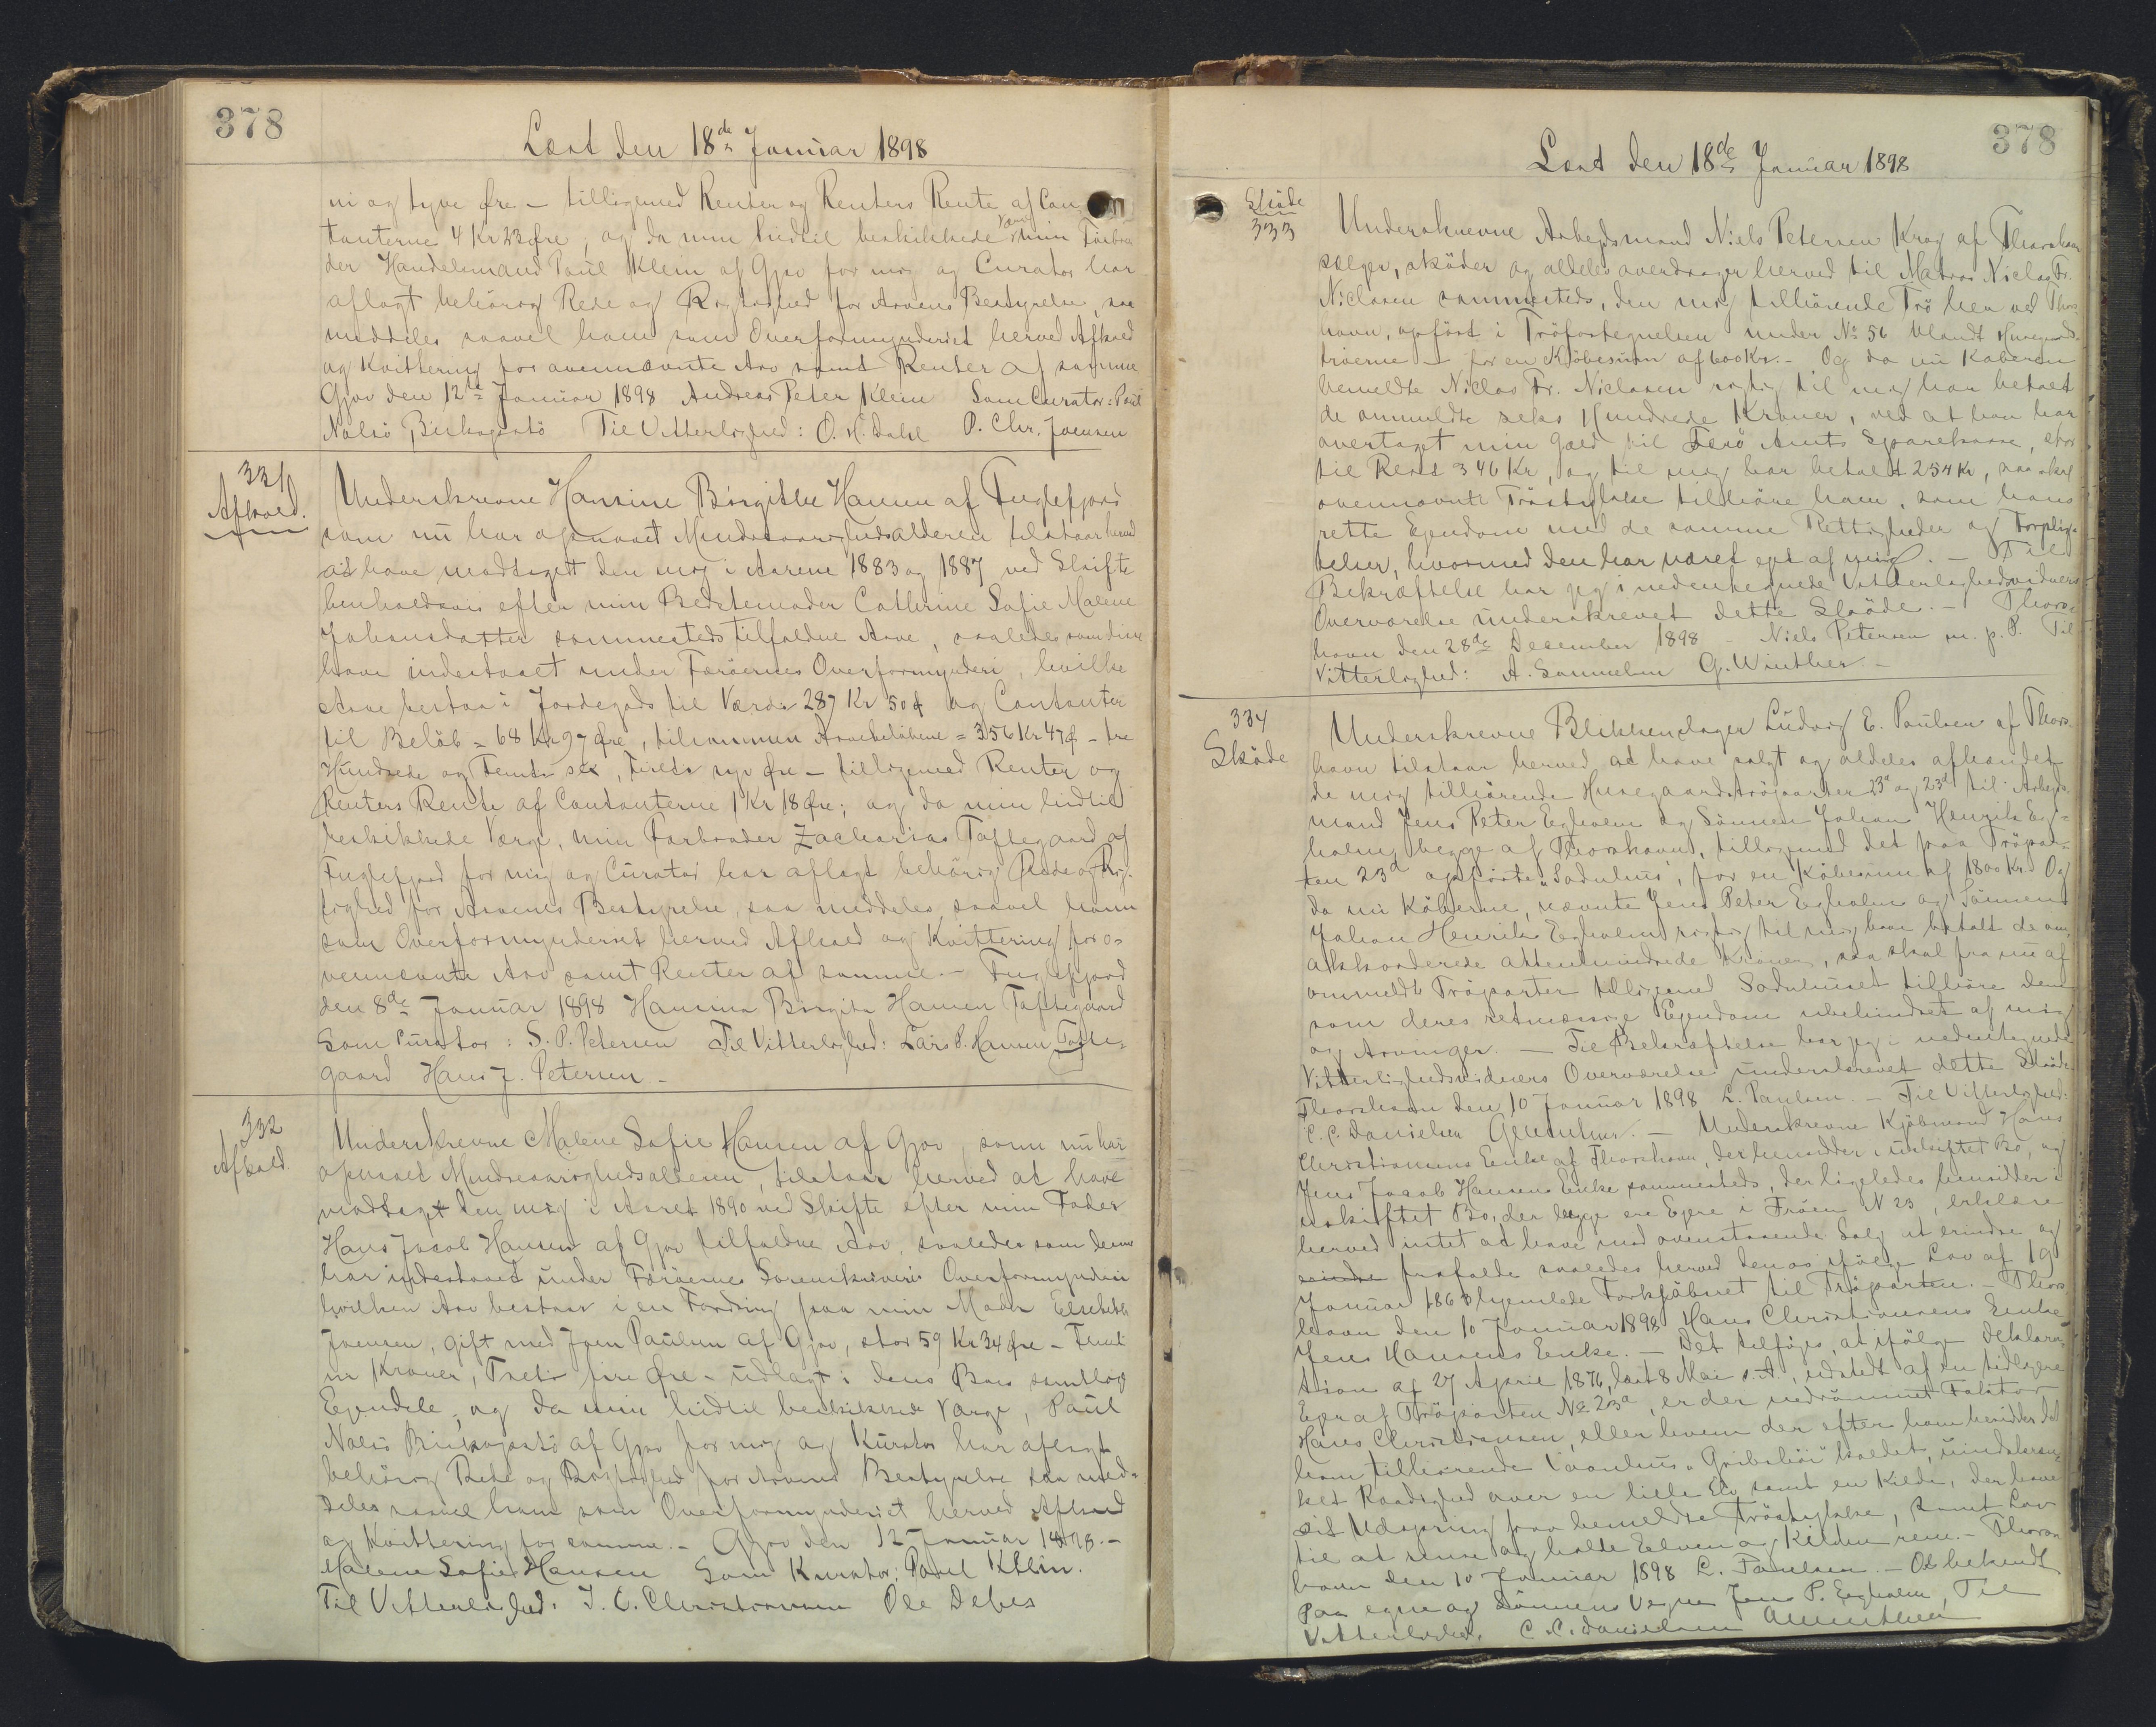 378
Læst den 18de Januar 1898
ni og tyve Øre – tilligemed Renter og Renters Rente af Con
tanterne 4 Kr 23 Øre, og da min hidtil beskikkede Værge min Farbro
der Handelsmand Paul Klein af Gjov for mig og Curator har
aflagt behörig Rede og Rigtighed for Arvens Bestyrelse, saa
meddeles saavel ham som Overformynderiet herved Afkald
og Kvittering for ovennævnte Arv samt Renter af samme
Gjov den 12te Januar 1898 Andreas Peter Klein Som Curator: Paul
Nolsö Biskopstö Til Vitterlighed: O. H. Dahl P. Chr. Joensen
331
Afkald.
Underskrevne Hansine Birgitte Hansen af Fuglefjord
som nu har opnaaet Mindreaarighedsalderen tilstaar herved
at have modtaget den mig i Aarene 1883 og 1887 ved Skifte
henholdsvis efter min Bedstemoder Cathrine Sofie Malene
Johansdatter sammesteds tilfaldne Arve, saaledes som disse
have indestaaet under Færöernes Overformynderi, hvilke
Arve bestaa i Jordegods til Værdi 287 Kr 50 Ø og Contanter
til Belöb = 68 Kr 97 Øre, tilsammen Arvebelöbene = 356 Kr 47 Ø – tre
Hundrede og Femti sex, fireti syv Øre – tilligemed Renter og
Renters Rente af Contanterne 1 Kr 18 Øre; og da min hidtil
beskikkede Værge, min Farbroder Zacharias Toftegaard af
Fuglefjord for mig og Curator har aflagt behörig Rede og Rig-
tighed for Arvenes Bestyrelse, saa meddeles saavel ham
som Overformynderiet herved Afkald og Kvittering for o-
vennævnte Arv samt Renter af samme. – Fuglefjord
den 8de Januar 1898 Hansina Birgita Hansen Toftegaard
Som Curator: S. P. Petersen Til Vitterlighed: Lars P. Hansen Tofte-
gaard Hans J. Petersen –
332
Afkald.
Underskrevne Malene Sofie Hansen af Gjov, som nu har
opnaaet Mindreaarighedsalderen, tilstaar herved at have
modtaget den mig i Aaret 1890 ved Skifte efter min Fader
Hans Jacob Hansen af Gjov tilfaldne Arv, saaledes som denne
har indestaaet under Færöernes Sorenskriveri Overformynderi
hvilken Arv bestaar i en Fordring paa min Moder Elsebeth
Joensen, gift med Joen Paulsen af Gjov, stor 59 Kr 34 Øre – Femti
ni Kroner, Treti fire Øre – udlagt i dens Boes samtlige
Ejendele; og da min hidtil beskikkede Værge, Paul
Nolsö Biskopstö af Gjov for mig og Kurator har aflagt
behörig Rede og Rigtighed for Arvens Bestyrelse saa med-
deles saavel ham som Overformynderiet herved Afkald
og Kvittering for samme. – Gjov den 12 Januar 1898. –
Malene Sofie Hansen Som Kurator: Poul Klein.
Til Vitterlighed: J. C. Christiansen Ole Debes
378
Læst den 18de Januar 1898
Sköde
333
Underskrevne Arbejdsmand Niels Petersen Krag af Thorshavn
sælger, sköder og aldeles overdrager herved til Matros Niclas Fr.
Niclasen sammesteds, den mig tilhörende Trö her ved Thors
havn, opfört i Tröfortegnelsen under No 56 blandt Husegaards
tröerne – for en Kjöbesum af 600 Kr. – Og da nu Köberen
bemeldte Niclas Fr. Niclasen rigtig til mig har betalt
de ommeldte seks Hundrede Kroner, ved at han har
overtaget min Gæld til Færö Amts Sparekasse, stor
til Rest 346 Kr, og til mig har betalt 254 Kr, saa skal
ovennævnte Tröstykke tilhöre ham, som hans
rette Ejendom med de samme Rettigheder og Forplig-
telser, hvormed den har været ejet af mig. – Til
Bekræftelse har jeg i nedentegnede Vitterlighedsvidners
Overværelse underskrevet dette Sköde. – Thors-
havn den 28de December 1898 – Niels Petersen m. p. P. Til
Vitterlighed: A. Samuelsen G. Winther. –
334
Sköde
Underskrevne Blikkenslager Ludvig E. Poulsen af Thors-
havn tilstaar herved at have solgt og aldeles afhændet
de mig tilhörende Husegaardströparter 23a og 23d til: Arbejds
mand Jens Peter Egholm og Sönnen Johan Henrik Eg-
holm, begge af Thorshavn, tilligemed det paa Tröpar-
ten 23d opförte "Sodnhus", for en Köbesum af 1800 Kr. Og
da nu Köberne, nævnte Jens Peter Egholm og Sönnen
Johan Henrik Egholm rigtig til mig have betalt de om
akkorderede attenhundrede Kroner, saa skal fra nu af
ommeldte Tröparter tilligemed Sodnhuset tilhöre dem
som deres retmæssige Ejendom ubehindret af mig
og Arvinger. – Til Bekræftelse har jeg i nedentegnede
Vitterlighedsvidners Overværelse underskrevet dette Sköde
Thorshavn den 10 Januar 1898 L. Paulsen. – Til Vitterlighed:
C. C. Danielsen – Underskrevne Kjöbmand Hans
Christiansens Enke af Thorshavn, der hensidder i uskiftet Bo, og
Jens Jacob Hansens Enke sammesteds, der ligeledes hensidder i
uskiftet Bo, der begge ere Ejere i Tröen N 23, erklære
herved intet at have mod ovenstaaende Salg at erindre og
frafalde saaledes herved den os ifölge Lov af 19
Januar 1863 hjemlede Forkjöbsret til Tröparten. – Thors
havn den 10 Januar 1898 Hans Christiansens Enke
Jens Hansens Enke. – Det tilföjes, at ifölge Deklara-
tion af 27 April 1876, læst 8 Mai s. A., udstedt af en tidligere
Ejer af Tröparten No 23a, er der indrömmet Faktor
Hans Christiansen, eller hvem der efter ham besidder det
ham tilhörende Vaanhus "Gribshöi" kaldet, uindskræn-
ket Raadighed over en lille Elv samt en Kilde, der have
sit Udspring paa bemeldte Tröstykke, samt Lov
til at rense og holde Elven og Kilden rene. – Thors-
havn den 10 Januar 1898 L. Paulsen. –
Paa egne og Sönnens Vegne Jens P. Egholm, Til
Vitterlighed. C. C. Danielsen